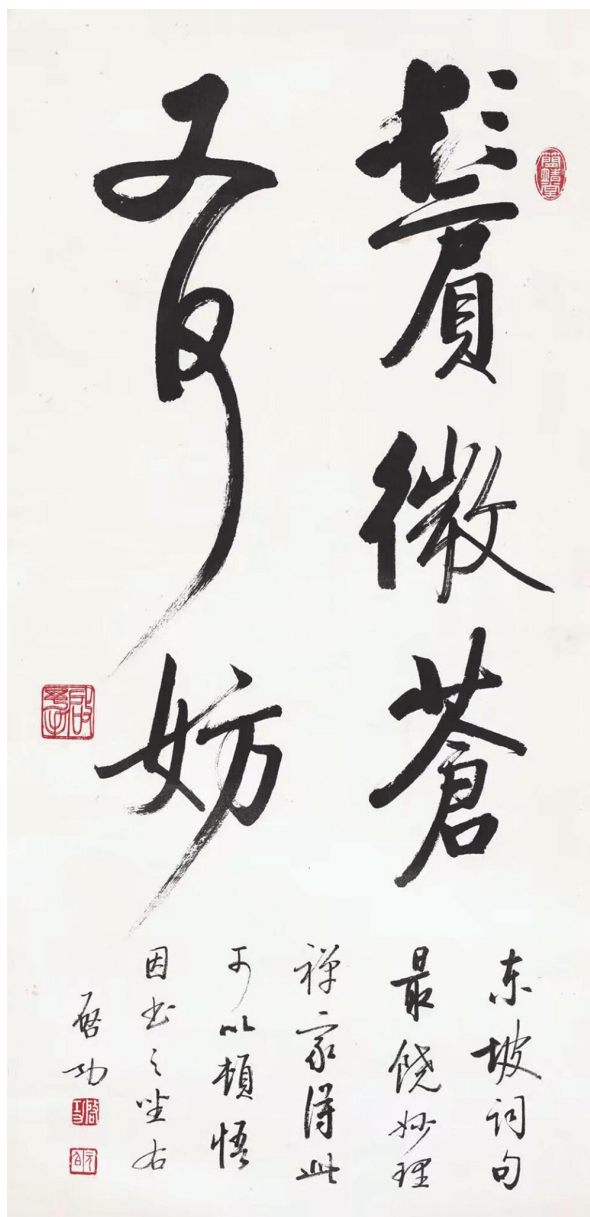 鬢微蒼
又何妨
东坡词句
最饶妙理
禅家得此
可以顿悟
因书之坐右
启功